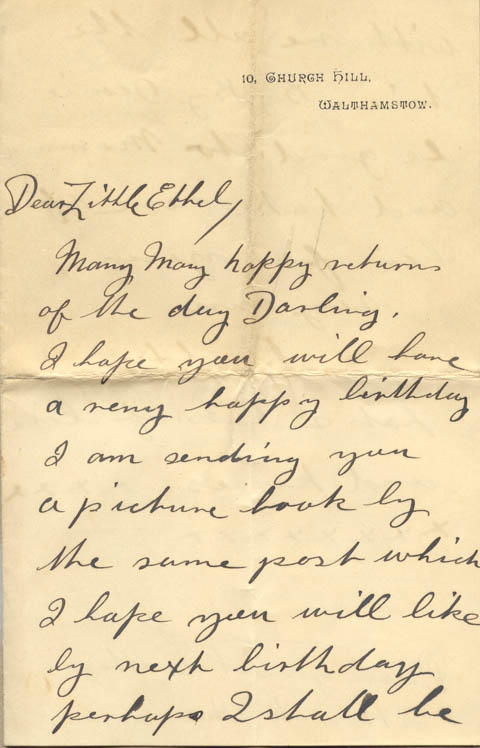 10, CHURCH HILL,
WALTHAMSTOW.
Dear Little Ethel,
Many Many happy returns
of the day Darling,
I hope you will have
a very happy birthday
I am sending you
a picture book by
the same post which
I hope you will like
by next birthday
perhaps I shall be